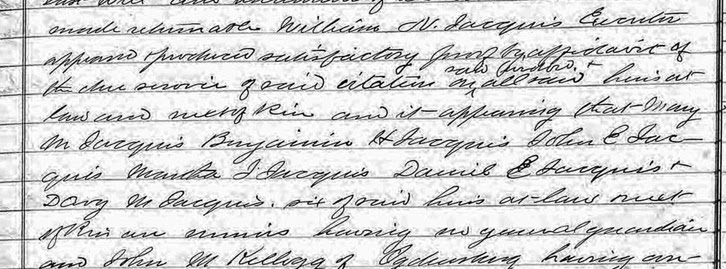 made returnable William N. Jacquis Executor
appeared & produced satisfactory proof by affidavit of
the due service of said citation on all said heirs at
law and next of kin and it appearing that Mary
M Jacquis Benjamin H Jacquis John E Jac-
quis Martha J Jacquis Daniel E Jacquis &
Davy M Jacquis. six of said heirs at law & next
of kin are minors having no general guardian
and John M Kellogg of Ogdensburg having con-